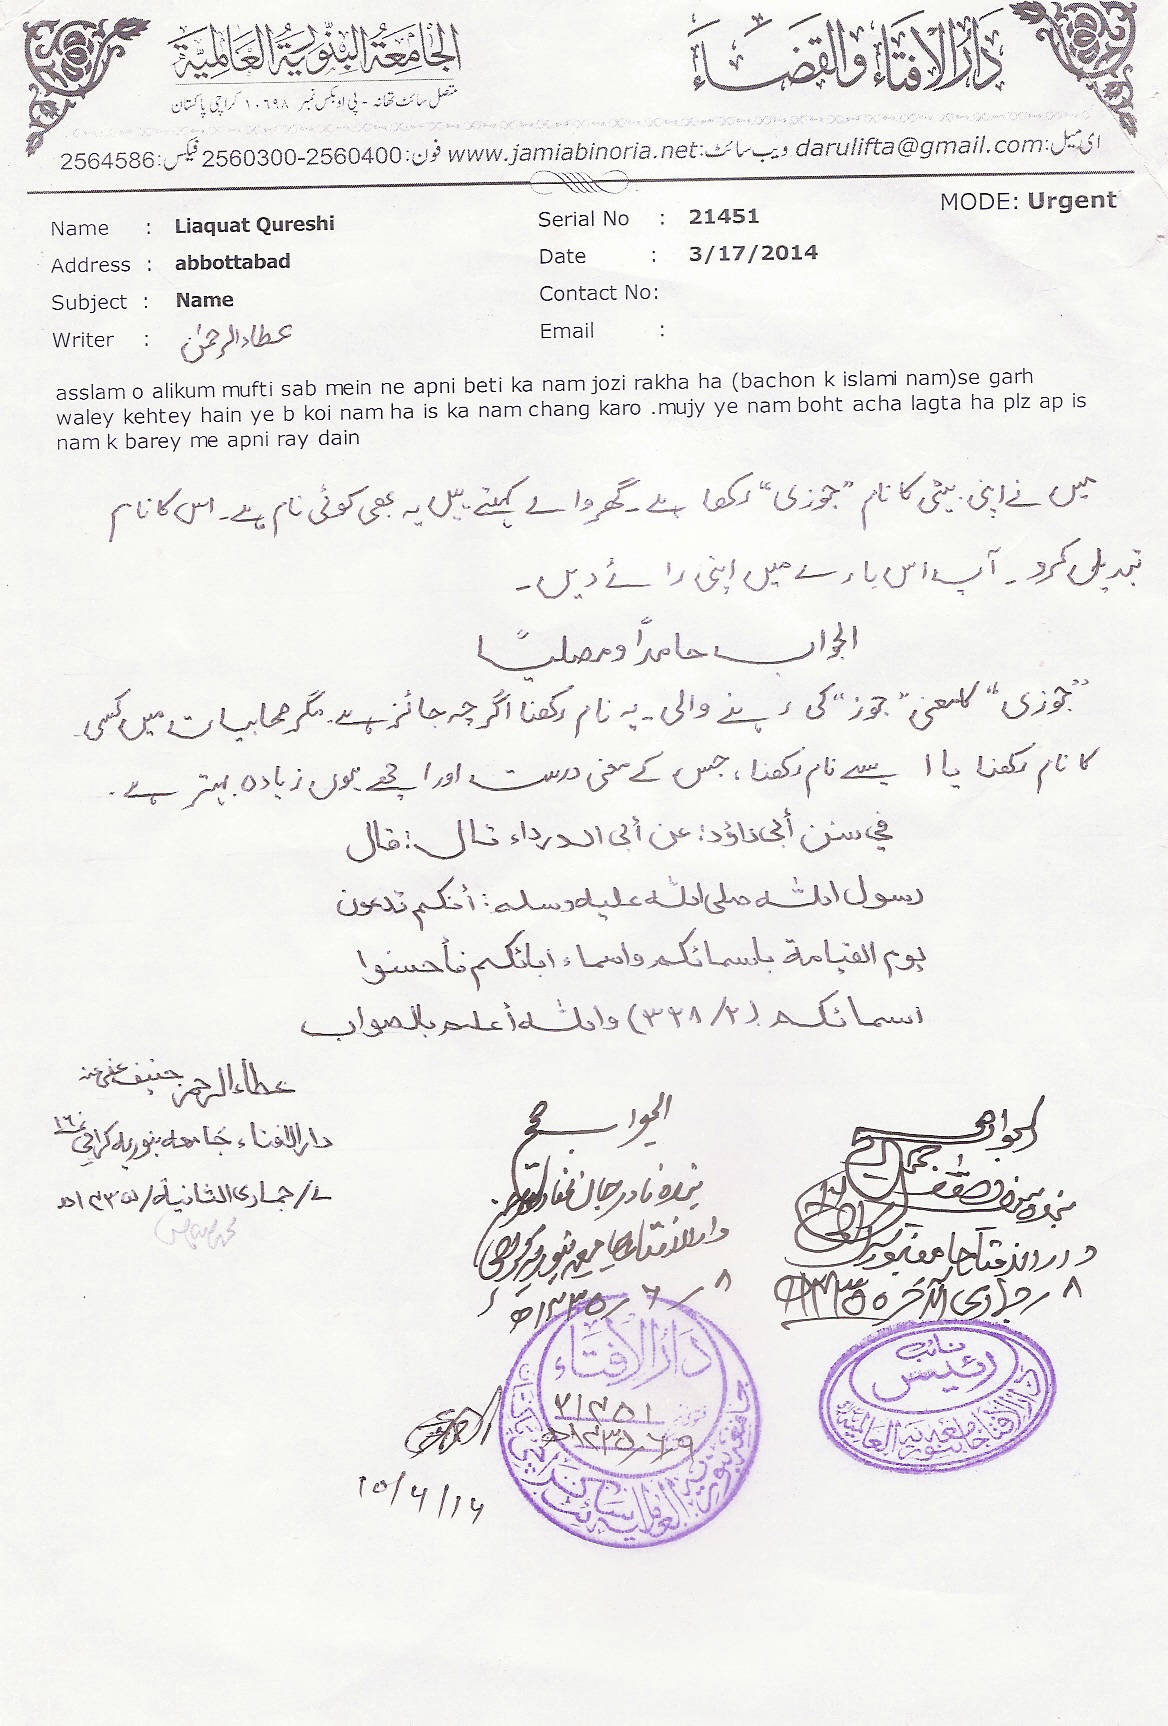 دار الافتاء والقضاء
الجامعة البنورية العالمية
متصل سائٹ تھانہ - پی او بکس نمبر ۱۰۶۹۸ کراچی پاکستان
ای میل:darulifta@gmail.com ویب سائٹ:www.jamiabinoria.net فون:2560300-2560400 فیکس:2564586
MODE: Urgent
Name : Liaquat Qureshi Serial No : 21451
Address : abbottabad Date : 3/17/2014
Subject : Name Contact No:
Writer : عطاء الرحمٰن Email :
asslam o alikum mufti sab mein ne apni beti ka nam jozi rakha ha (bachon k islami nam)se garh
waley kehtey hain ye b koi nam ha is ka nam chang karo .mujy ye nam boht acha lagta ha plz ap is
nam k barey me apni ray dain
میں نے اپنی بیٹی کا نام "جوزی" رکھا ہے۔ گھر والے کہتے ہیں یہ بھی کوئی نام ہے۔ اس کا نام
تبدیل کرو۔ آپ اس بارے میں اپنی رائے دیں۔
الجواب حامداً ومصلیاً
"جوزی" کا معنی "جوز" کی رہنے والی۔ یہ نام رکھنا اگرچہ جائز ہے۔ مگر صحابیات میں کسی
کا نام رکھنا یا ایسے نام رکھنا، جس کے معنی درست اور اچھے ہوں زیادہ بہتر ہے۔
في سنن أبي داؤد: عن أبي الدرداء قال: قال
رسول الله صلى الله عليه وسلم: أنكم تدعون
يوم القيامة باسمائكم واسماء ابائكم فأحسنوا
اسمائكم (۲/ ۳۲۸) والله أعلم بالصواب
عطاء الرحمن حنيف عفی عنہ
دارالافتاء جامعہ بنوریہ کراچی ۱۶
۷/جمادی الثانیة/۱۴۳۵ھ
الجواب صحیح
بندہ نادر جان
دارالافتاء جامعہ بنوریہ کراچی
۸ / ۶ / ۱۴۳۵ھ
الجواب صحیح
بندہ
دارالافتاء جامعہ بنوریہ
۸ / جمادی الآخرة ۱۴۳۵ھ
نائب
رئیس
دارالافتاء جامعہ بنوریہ العالمیة
دار الافتاء
۲۱۴۵۱
۹ ۶ ۱۴۳۵ھ
۱۵/۴/۱۴